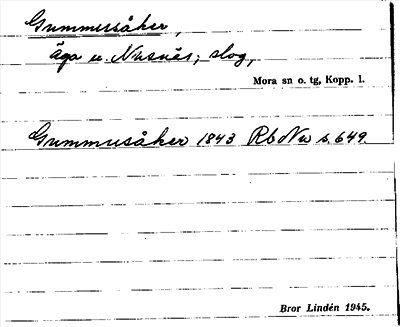 Gummusåker,
äga u. Nusnäs; slog,
Mora sn o. tg, Kopp. l.
Gummusåker 1843 RbNu s. 649.
Bror Lindén 1945.